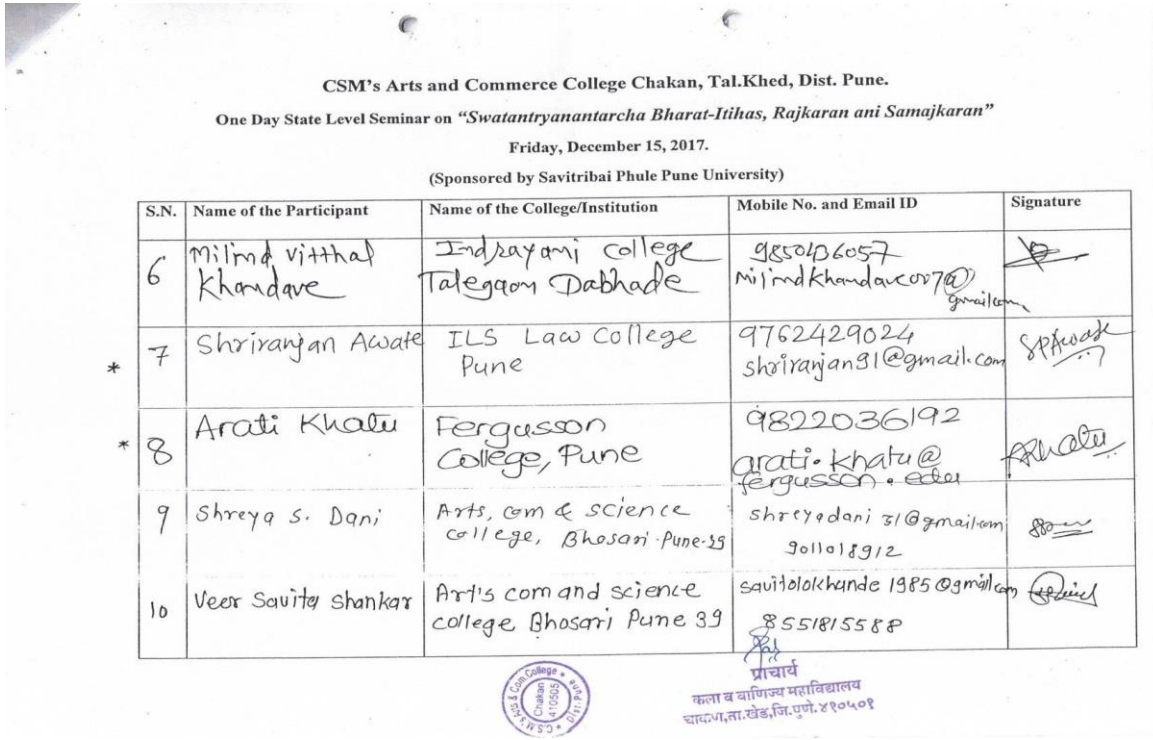 CSM's Arts and Commerce College Chakan, Tal.Khed, Dist. Pune.
One Day State Level Seminar on "Swatantryanantarcha Bharat-Itihas, Rajkaran ani Samajkaran"
Friday, December 15, 2017.
(Sponsored by Savitribai Phule Pune University)
S.N. Name of the Participant Name of the College/Institution Mobile No. and Email ID Signature
6 Milind Vitthal Khandave
Indrayani College
Talegaon Dabhade
gmail.com
* 7 Shriranjan Awate
ILS Law College
Pune
9762429024
shriranjan91@gmail.com
SPAwate
* 8 Arati Khatu
Fergusson
College, Pune
9822036192
arati.khatu@
fergusson.edu
ARhatu
9 Shreya S. Dani
Arts, com & science
college, Bhosari Pune-39
shreyadani31@gmail.com
9011018912
10 Veer Savita Shankar
Art's com and science
college Bhosari Pune 39
savitalokhande1985@gmail.com
8551815588
C.S.M'S Arts & Com.College * Dist-Pune *
Chakan
410505
प्राचार्य
कला व वाणिज्य महाविद्यालय
चाकण,ता.खेड,जि.पुणे.४१०५०१